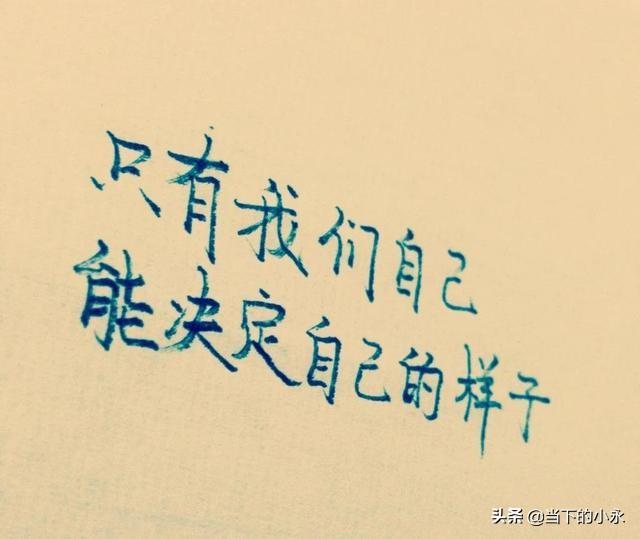 只有我们自己
能决定自己的样子
头条 @当下的小永